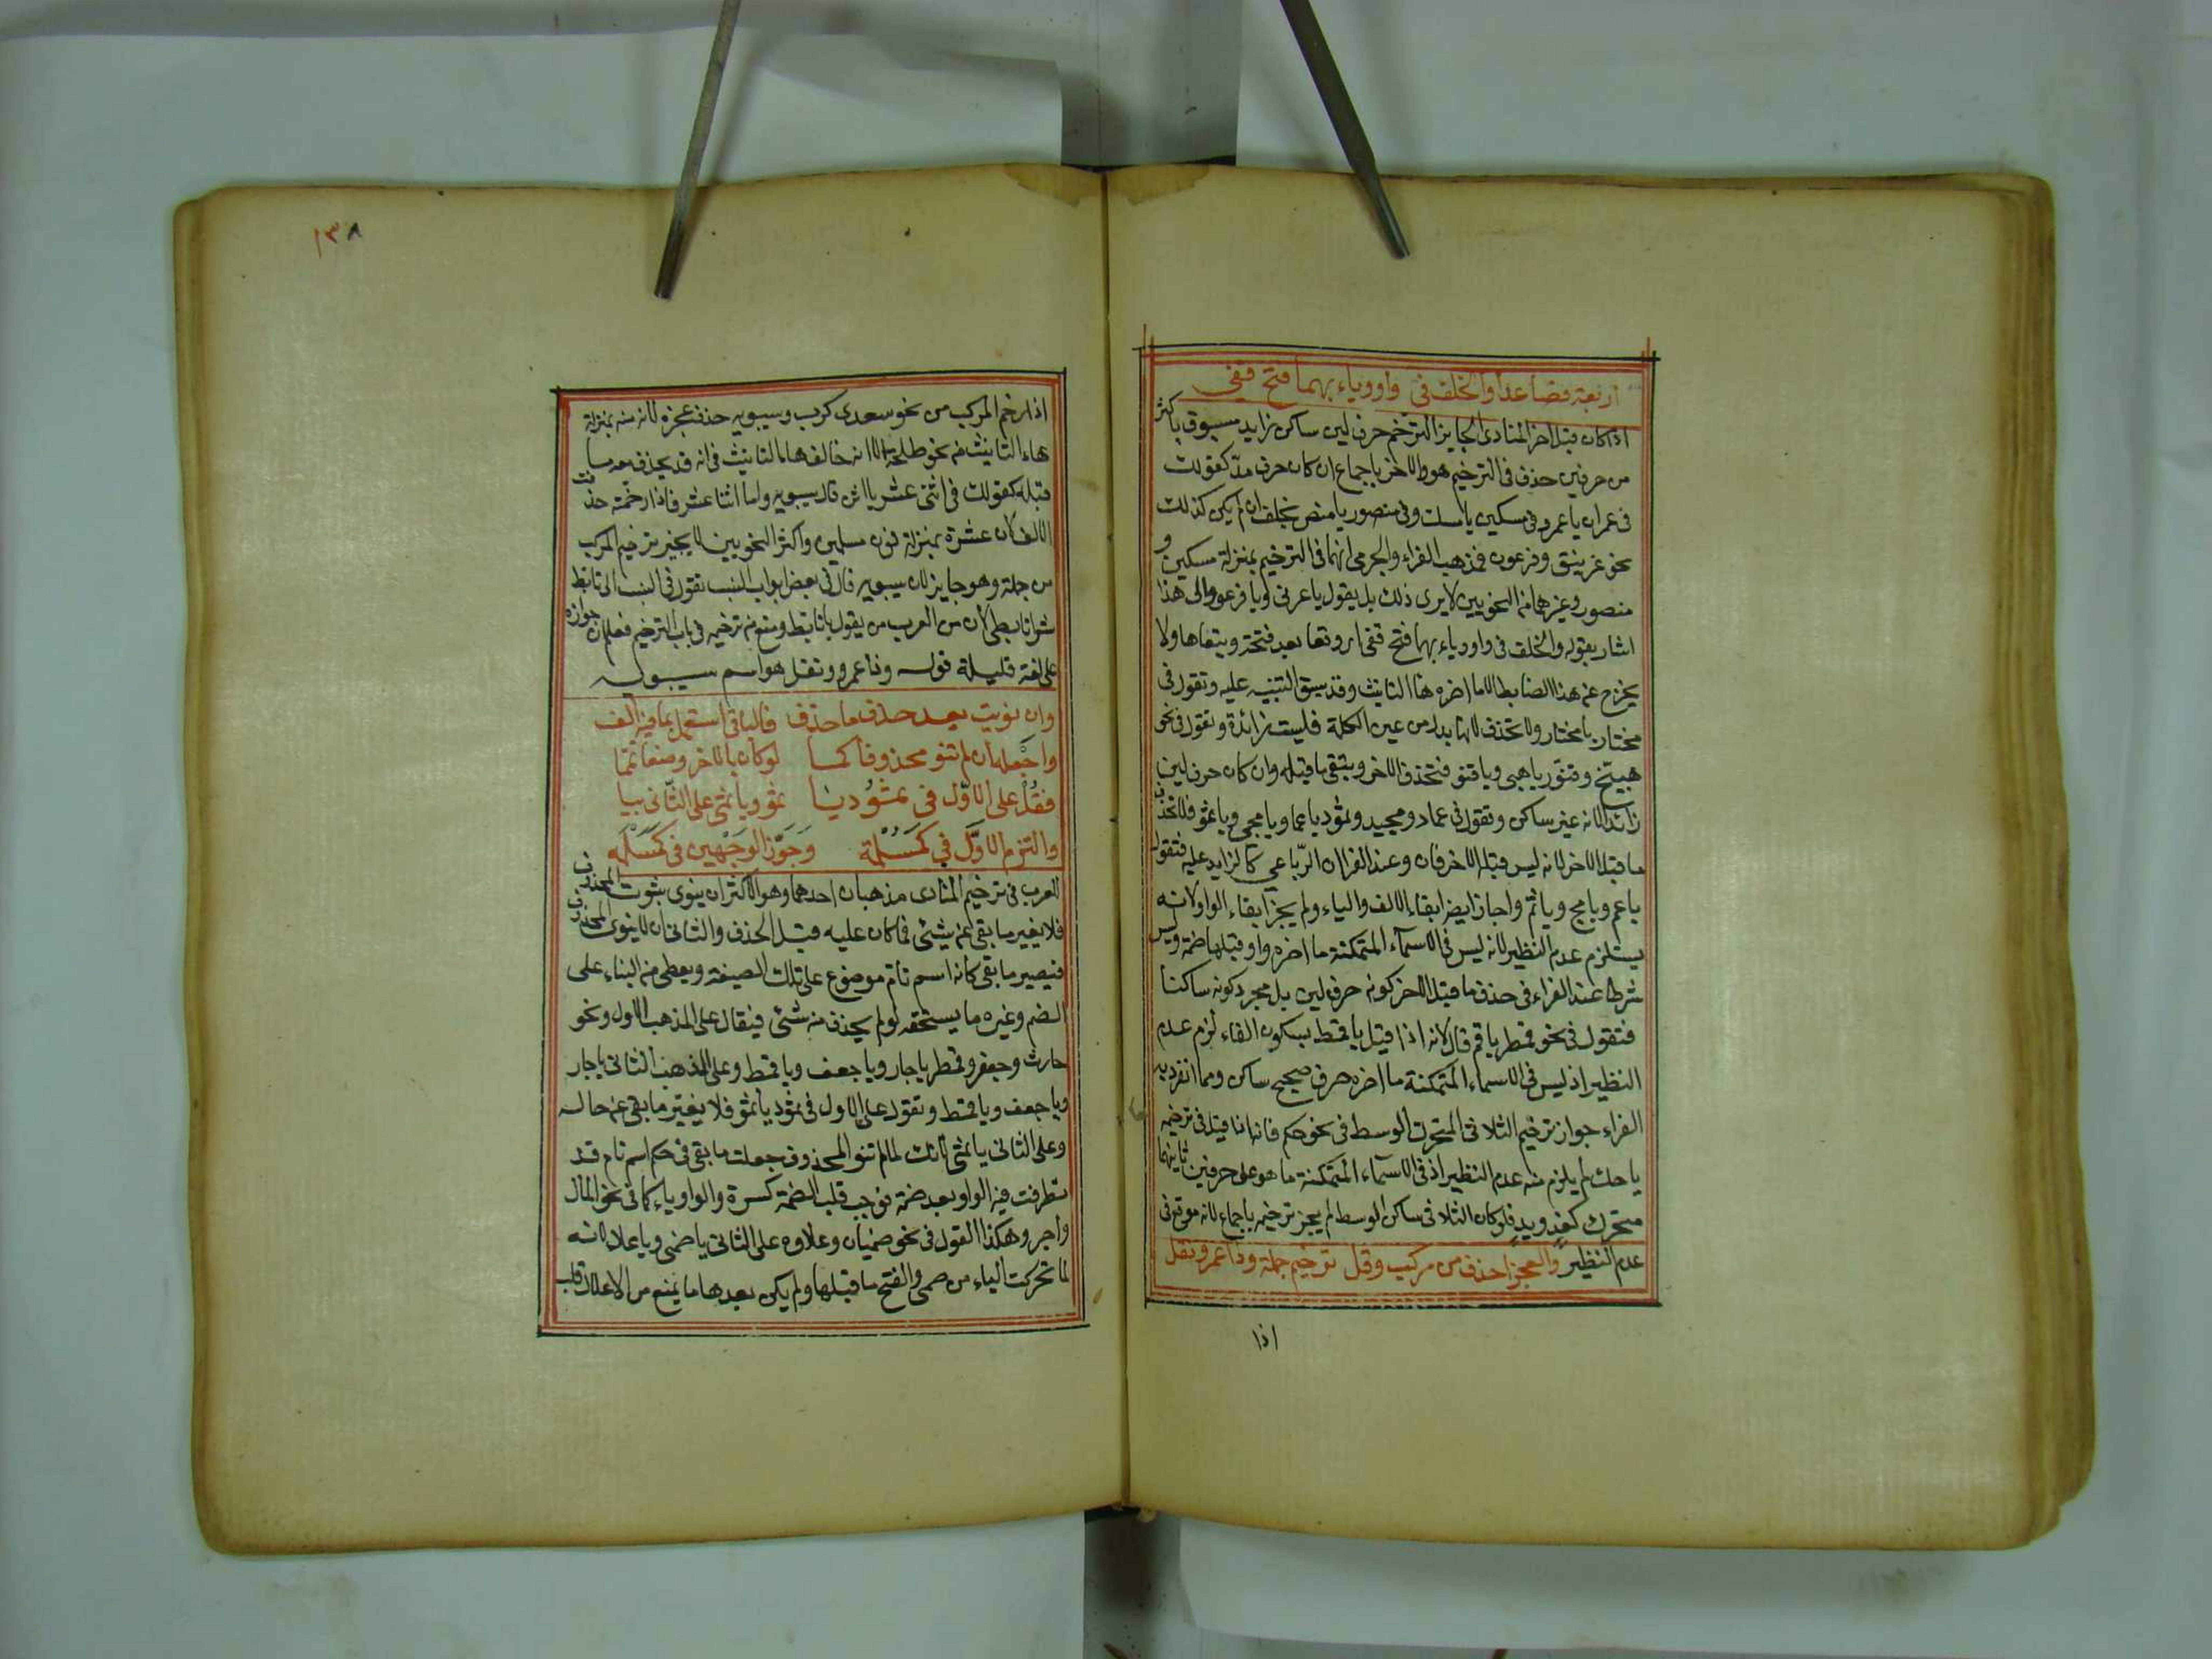 اربعة فصاعدا والخلف في واو وياء بهما فتح قفي
اذا كان قبل اخر المنادى الجايز الترخيم حرف لين ساكن زايد مسبوق باكثر
من حرفين حذف في الترخيم هو والاخر باجماع ان كان حرف مد كقولك
في عمران يا عمرو في مسكين يا مسك وفي منصور يا منص بخلف ان لم يكن كذلك
نحو غرنيق وفرعون فمذهب الفراء والجرمي انهما في الترخيم بمنزلة مسكين و
منصور وغيرهما من النحويين لا يرى ذلك بل يقول يا غرني ويا فرعو والى هذا
اشار بقوله والخلف في واو وياء بهما فتح قفي اي وقعا بعد فتحة وتبعاها ولا
يخرج عن هذا الضابط الا ما اخره هاء التانيث وقد سبق التنبيه عليه وتقول في
مختار يا مختار ولا تحذف لانها بدل من عين الكلمة فليست زائدة وتقول في نحو
هبيّخ وقنوّر يا هبي ويا قنو فتحذف الاخر ويبقى ما قبله وان كان حرف لين
زائدا لانه غير ساكن وتقول في عماد ومجيد وثمود يا عما ويا مجي ويا ثمو فلا تحذف
ما قبل الاخر لانه ليس قبله الا حرفان وعند الفرا ان الرباعي كالزايد عليه فتقول
يا عم ويا مج ويا ثم واجاز ايضا ابقاء الالف والياء ولم يجز ابقاء الواو لانه
يستلزم عدم النظير لانه ليس في الاسماء المتمكنة ما اخره واو قبلها ضمة وليس
شرطا عند الفراء في حذف ما قبل الاخر كونه حرف لين بل مجرد كونه ساكنا
فتقول في نحو قمطر يا قم قال لانه اذا قيل يا قمط بسكون الطاء لزم عدم
النظير اذ ليس في الاسماء المتمكنة ما اخره حرف صحيح ساكن ومما انفرد به
الفراء جواز ترخيم الثلاثي المتحرك الوسط في نحو حكم فانه اذا قيل في ترخيمه
يا حك لم يلزم منه عدم النظير اذ في الاسماء المتمكنة ما هو على حرفين ثانيهما
متحرك كغد ويد فلو كان الثلاثي ساكن الوسط لم يجز ترخيمه باجماع لانه موقع في
عدم النظير والعجز احذف من مركب وقل ترخيم جملة وذا عمرو نقل
اذا
١٣٨
اذا رخم المركب من نحو معدي كرب وسيبويه حذف عجزه لانه منه بمنزلة
هاء التانيث من نحو طلحة الا انه خالف هاء التانيث في انه قد يحذف معه ما
قبله كقولك في اثني عشر يا اثن قال سيبويه واما اثنا عشر فاذا رخمته حذفت
الالف لان عشرة بمنزلة نون مسلمين واكثر النحويين لا يجيز ترخيم المركب
من جملة وهو جايز لان سيبويه قال في بعض ابواب النسب تقول في النسب الى تابط
شرا تابطي لان من العرب من يقول يا تابط ومنع من ترخيمه في باب الترخيم فعلم ان جوازه
على لغة قليلة قوله وذا عمرو نقل هو اسم سيبويه
وان نويت بعد حذف ما حذف فالباقي استعمل بما فيه الف
واجعله ان لم تنو محذوفا كما لو كان بالاخر وضعا تمما
فقل على الاول في ثمود يا ثمو ويا ثمي على الثاني بيا
والتزم الاول في كمسلمة وجوز الوجهين في كمسلمة
للعرب في ترخيم المنادى مذهبان احدهما وهو الاكثر ان ينوى ثبوت المحذوف
فلا يغير ما بقي عن شيئ مما كان عليه قبل الحذف والثاني ان لا ينوى المحذوف
فيصير ما بقي كانه اسم تام موضوع على تلك الصيغة ويعطى من البناء على
الضم وغيره ما يستحقه لو لم يحذف منه شيئ فيقال على المذهب الاول في نحو
حارث وجعفر وقمطر يا حار ويا جعف ويا قمط وعلى المذهب الثاني يا حار
ويا جعف ويا قمط وتقول على الاول في ثمود يا ثمو فلا يغير ما بقي عن حاله
وعلى الثاني يا ثمي لانك لما لم تنو المحذوف جعلت ما بقي في حكم اسم تام قد
تطرفت فيه الواو بعد ضمة فوجب قلب الضمة كسرة والواو ياء كما في نحو المال
واجر وهكذا القول في نحو صميان وعلاوة على الثاني يا صمى ويا علا لانه
لما تحركت الياء من صمي وانفتح ما قبلها ولم يكن بعدها ما يمنع من الاعلال قلب